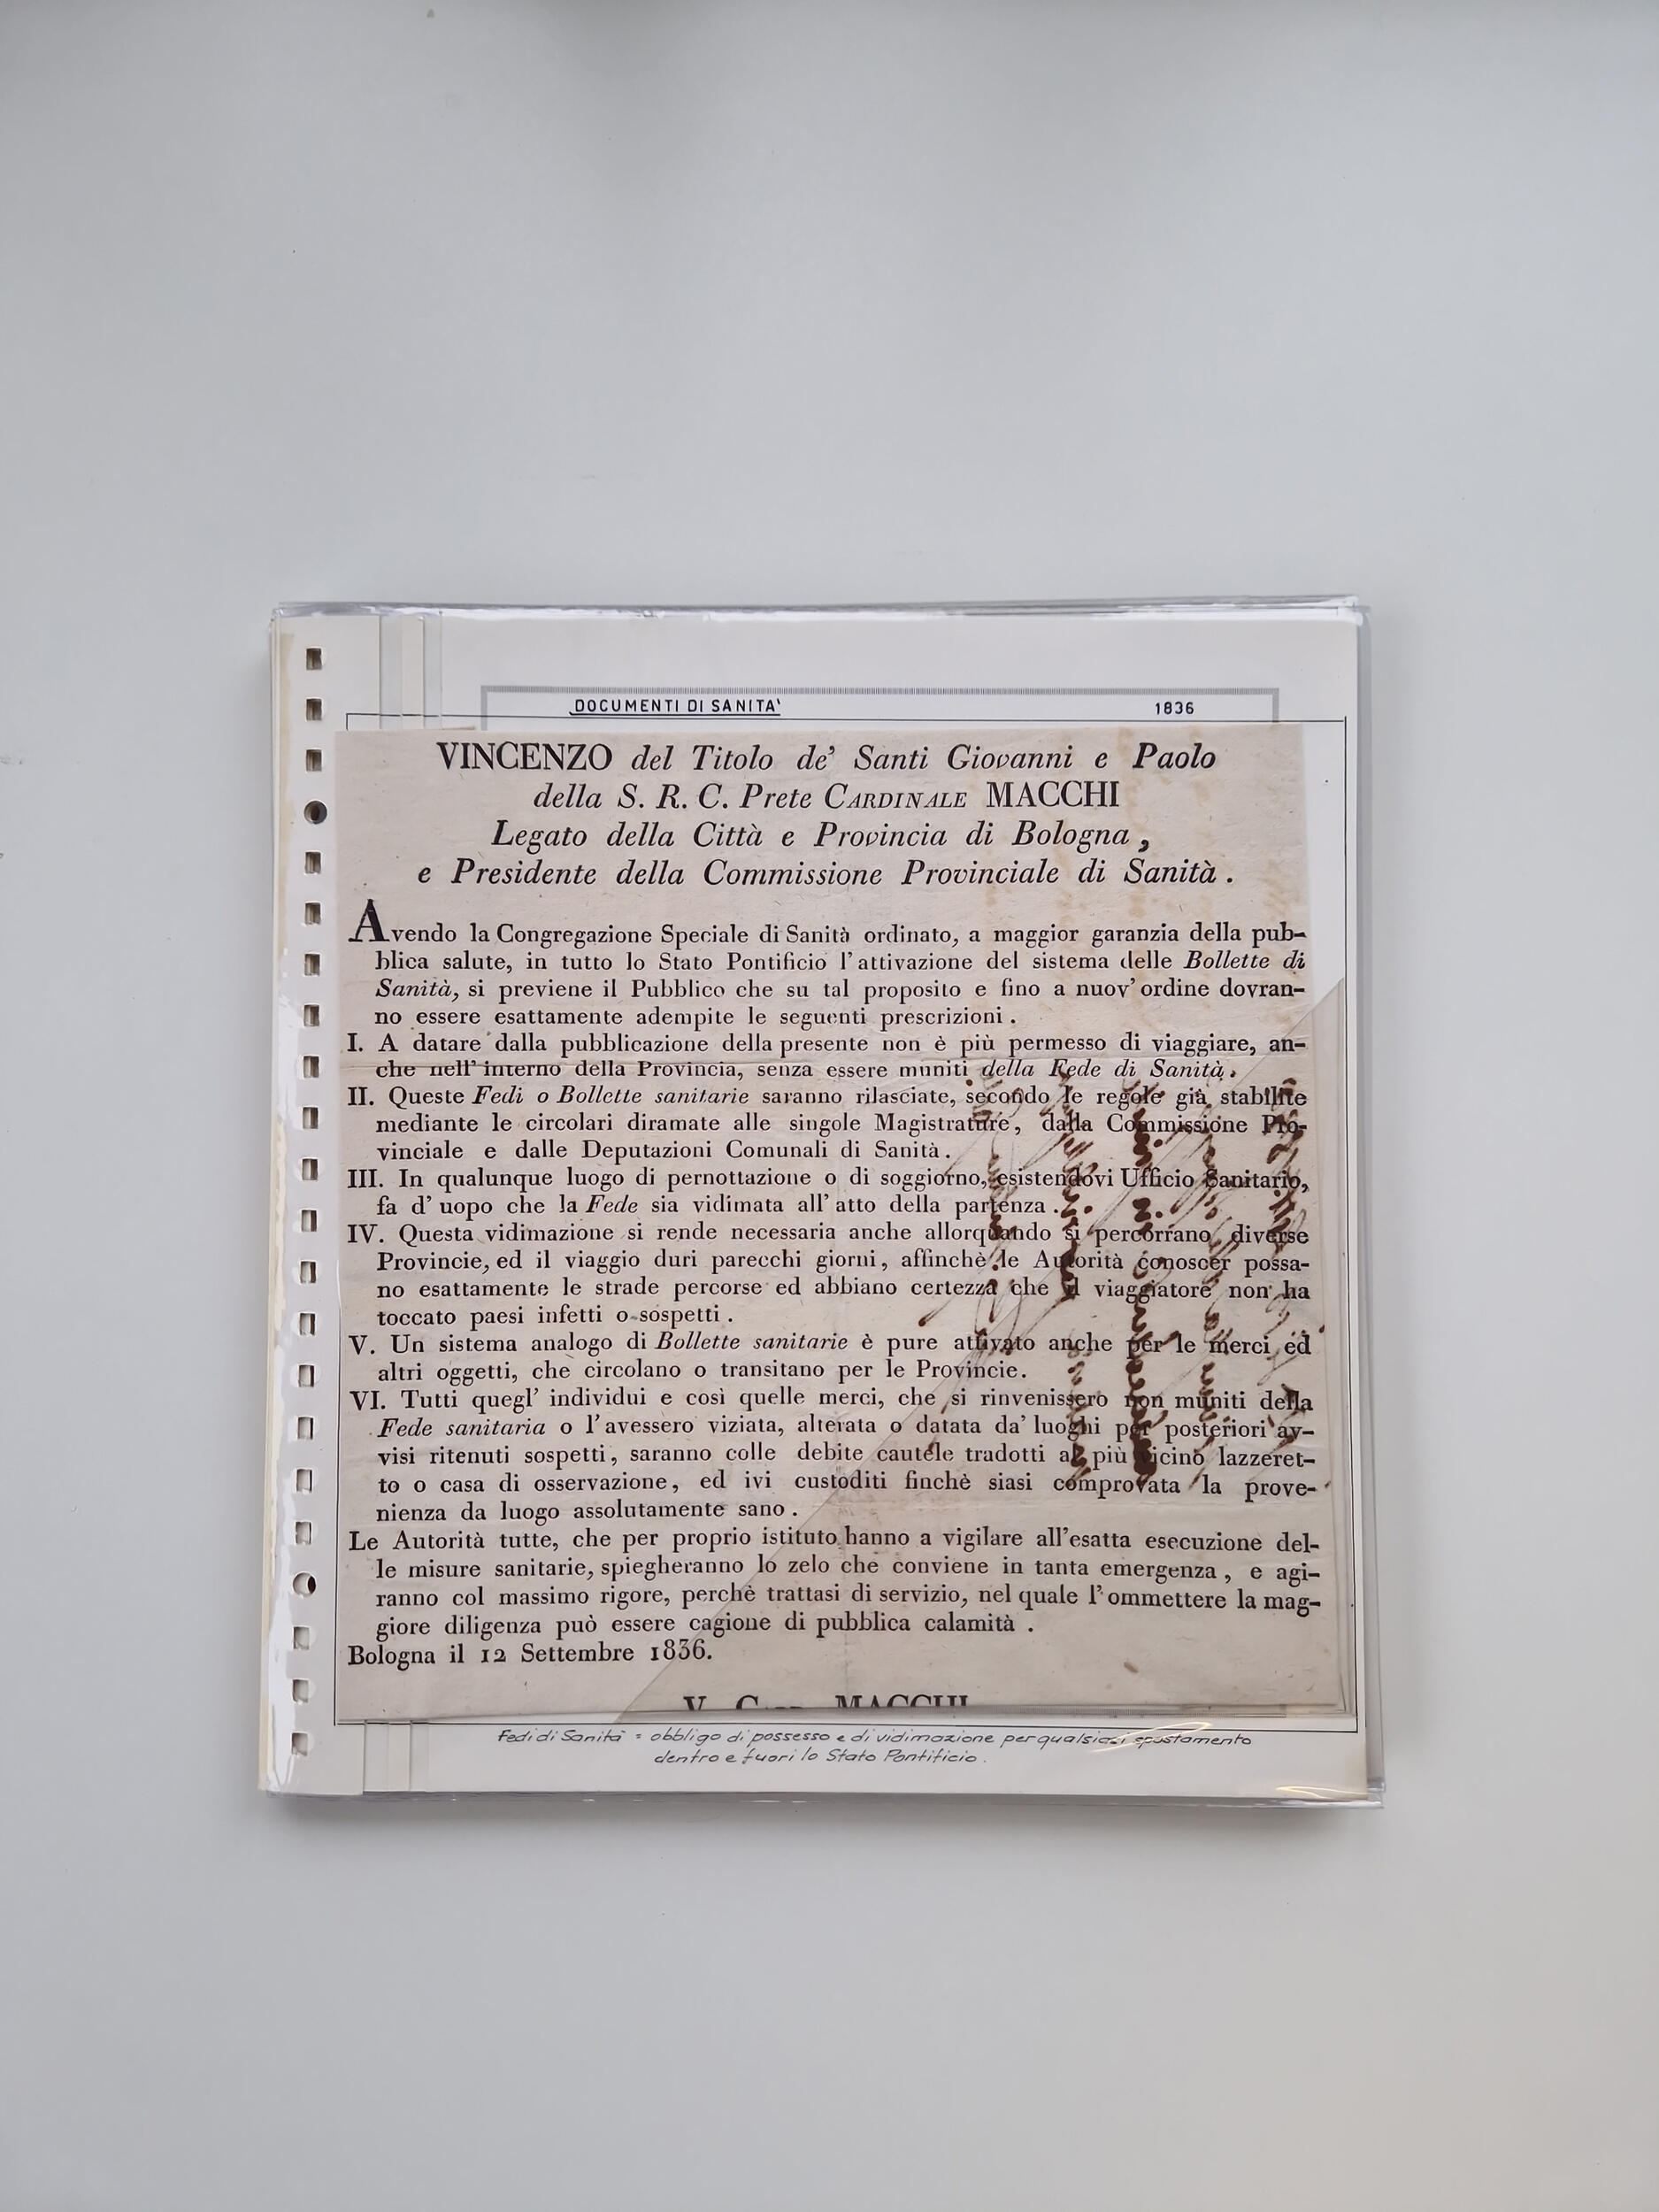 DOCUMENTI DI SANITA' 1836
VINCENZO del Titolo de' Santi Giovanni e Paolo
della S. R. C. Prete CARDINALE MACCHI
Legato della Città e Provincia di Bologna,
e Presidente della Commissione Provinciale di Sanità.
Avendo la Congregazione Speciale di Sanità ordinato, a maggior garanzia della pub-
blica salute, in tutto lo Stato Pontificio l'attivazione del sistema delle Bollette di
Sanità, si previene il Pubblico che su tal proposito e fino a nuov' ordine dovran-
no essere esattamente adempite le seguenti prescrizioni.
I. A datare dalla pubblicazione della presente non è più permesso di viaggiare, an-
che nell' interno della Provincia, senza essere muniti della Fede di Sanità.
II. Queste Fedi o Bollette sanitarie saranno rilasciate, secondo le regole già stabilite
mediante le circolari diramate alle singole Magistrature, dalla Commissione Pro-
vinciale e dalle Deputazioni Comunali di Sanità.
III. In qualunque luogo di pernottazione o di soggiorno, esistendovi Ufficio Sanitario,
fa d' uopo che la Fede sia vidimata all' atto della partenza.
IV. Questa vidimazione si rende necessaria anche allorquando si percorrano diverse
Provincie, ed il viaggio duri parecchi giorni, affinchè le Autorità conoscer possa-
no esattamente le strade percorse ed abbiano certezza che il viaggiatore non ha
toccato paesi infetti o sospetti.
V. Un sistema analogo di Bollette sanitarie è pure attivato anche per le merci ed
altri oggetti, che circolano o transitano per le Provincie.
VI. Tutti quegl' individui e così quelle merci, che si rinvenissero non muniti della
Fede sanitaria o l'avessero viziata, alterata o datata da' luoghi per posteriori av-
visi ritenuti sospetti, saranno colle debite cautele tradotti al più vicino lazzeret-
to o casa di osservazione, ed ivi custoditi finchè siasi comprovata la prove-
nienza da luogo assolutamente sano.
Le Autorità tutte, che per proprio istituto hanno a vigilare all'esatta esecuzione del-
le misure sanitarie, spiegheranno lo zelo che conviene in tanta emergenza, e agi-
ranno col massimo rigore, perchè trattasi di servizio, nel quale l' ommettere la mag-
giore diligenza può essere cagione di pubblica calamità.
Bologna il 12 Settembre 1836.
V. CARD. MACCHI
Fedi di Sanità = obbligo di possesso e di vidimazione per qualsiasi spostamento
dentro e fuori lo Stato Pontificio.